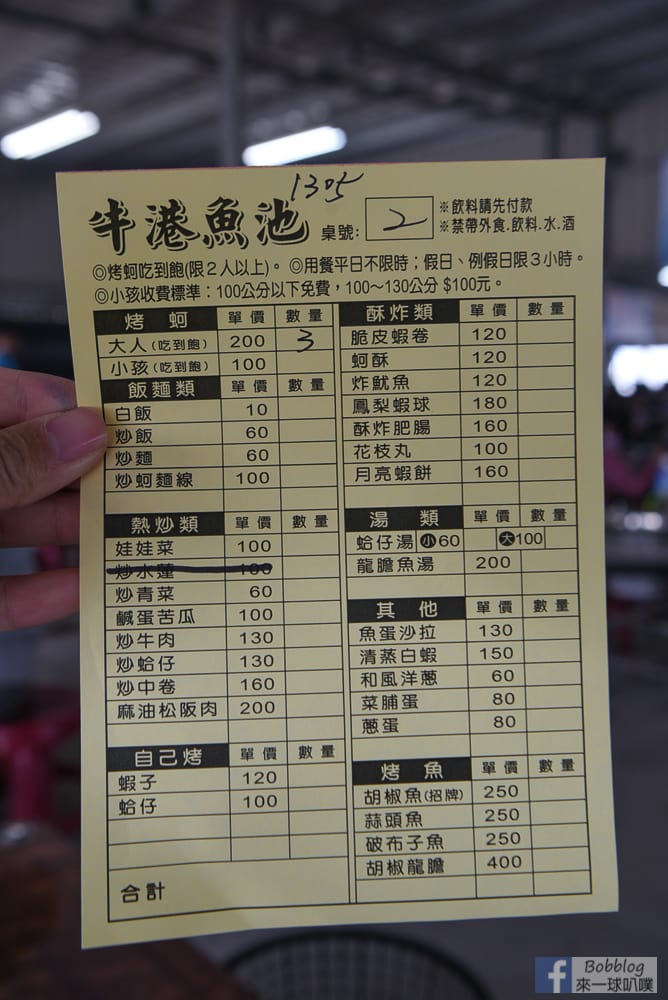 1305
半港魚池 桌號: 2 ※飲料請先付款
※禁帶外食.飲料.水.酒
◎烤蚵吃到飽(限2人以上)。◎用餐平日不限時；假日、例假日限3小時。
◎小孩收費標準：100公分以下免費，100~130公分 $100元。
烤 蚵 單 價 數 量
大人(吃到飽) 200 3
小孩(吃到飽) 100
飯麵類 單 價 數 量
白飯 10
炒飯 60
炒麵 60
炒蚵麵線 100
熱炒類 單 價 數 量
娃娃菜 100
炒水蓮 100
炒青菜 60
鹹蛋苦瓜 100
炒牛肉 130
炒蛤仔 130
炒中卷 160
麻油松阪肉 200
自己烤 單 價 數 量
蝦子 120
蛤仔 100
合計
酥炸類 單 價 數 量
脆皮蝦卷 120
蚵酥 120
炸魷魚 120
鳳梨蝦球 180
酥炸肥腸 160
花枝丸 100
月亮蝦餅 160
湯 類 單 價 數 量
蛤仔湯 小60 大100
龍膽魚湯 200
其 他 單 價 數 量
魚蛋沙拉 130
清蒸白蝦 150
和風洋蔥 60
菜脯蛋 80
蔥蛋 80
烤 魚 單 價 數 量
胡椒魚(招牌) 250
蒜頭魚 250
破布子魚 250
胡椒龍膽 400
f Bobblog
來一球叭噗